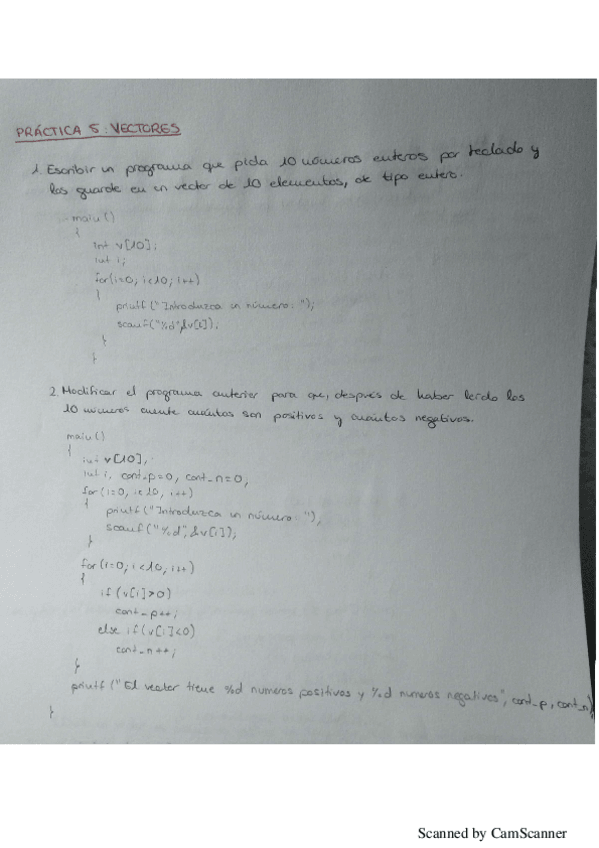 PRÁCTICA 5: VECTORES
1. Escribir un programa que pida 10 números enteros por teclado y
los guarde en un vector de 10 elementos, de tipo entero.
main()
{
int v[10];
int i;
for(i=0; i<10; i++)
{
printf("Introduzca un número: ");
scanf("%d",&v[i]);
}
}
2. Modificar el programa anterior para que, después de haber leído los
10 números cuente cuántos son positivos y cuántos negativos.
main()
{
int v[10],
int i, cont_p=0, cont_n=0;
for(i=0, i<10, i++)
{
printf("Introduzca un número: ");
scanf("%d",&v[i]);
}
for(i=0; i<10; i++)
{
if (v[i]>0)
cont_p++;
else if(v[i]<0)
cont_n++;
}
printf("El vector tiene %d numeros positivos y %d numeros negativos", cont_p, cont_n)
}
Scanned by CamScanner